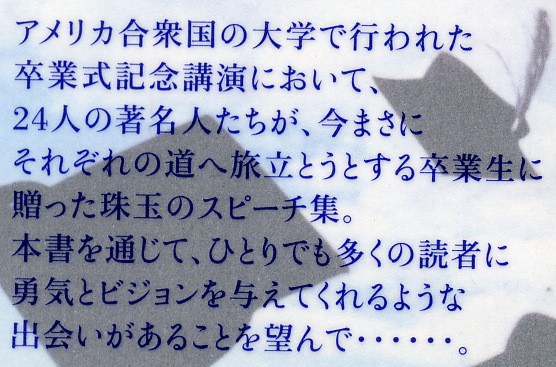 アメリカ合衆国の大学で行われた
卒業式記念講演において、
24人の著名人たちが、今まさに
それぞれの道へ旅立とうとする卒業生に
贈った珠玉のスピーチ集。
本書を通じて、ひとりでも多くの読者に
勇気とビジョンを与えてくれるような
出会いがあることを望んで・・・・・・。